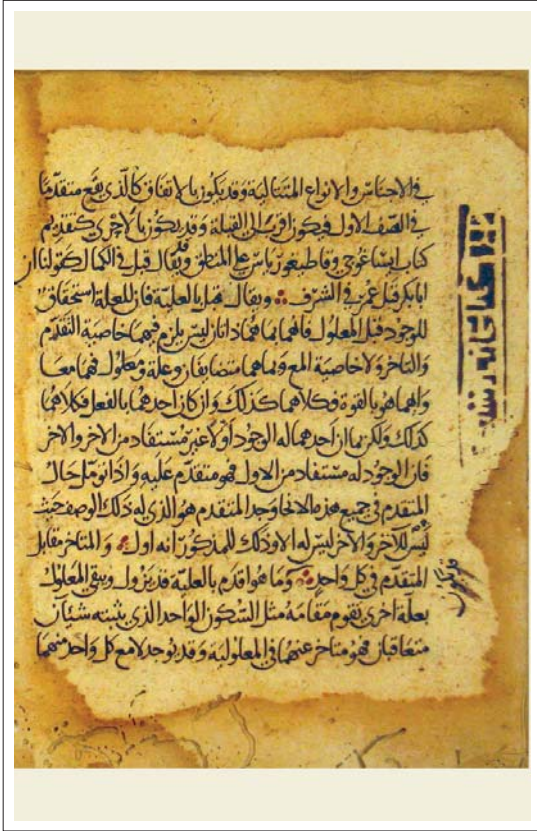 في الاجناس والانواع المتتالية وقد يكون بالاتفاق كالذي يقع متقدما
في الصف الاول فيكون اقرب الى القبلة وقد يكون بالاحرى كتقديم
كتاب ايساغوجي وقاطيغورياس على المنطق وقد يقال قبل في الكمال كقولنا ان
ابا بكر قبل عمر في الشرف ويقال قبل بالعلية فان للعلة استحقاق
للوجود قبل المعلول فانهما بما هما ذاتان ليس يلزم فيهما خاصية التقدم
والتاخر ولا خاصية المع وبما هما متضايفان وعلة ومعلول فهما معا
وايهما هو بالقوة فكلاهما كذلك وان كان احدهما بالفعل فكلاهما
كذلك ولكن بما ان احدهما له الوجود اولا غير مستفاد من الاخر والاخر
فان الوجود له مستفاد من الاول فهو متقدم عليه واذا تومل حال
المتقدم في جميع هذه الانحا وجد المتقدم هو الذي له ذلك الوصف حيث
ليس للآخر والآخر ليس له الا وذلك للمذكور انه اول والمتاخر مقابل
المتقدم في كل واحد وما هو اقدم بالعلية قد يزول ويبقى المعلول
بعلة اخرى تقوم مقامه مثل السكون الواحد الذي يثبته شيئان
متعاقبان فهو متاخر عنهما في المعلولية وقد يوجد لا مع كل واحد منهما